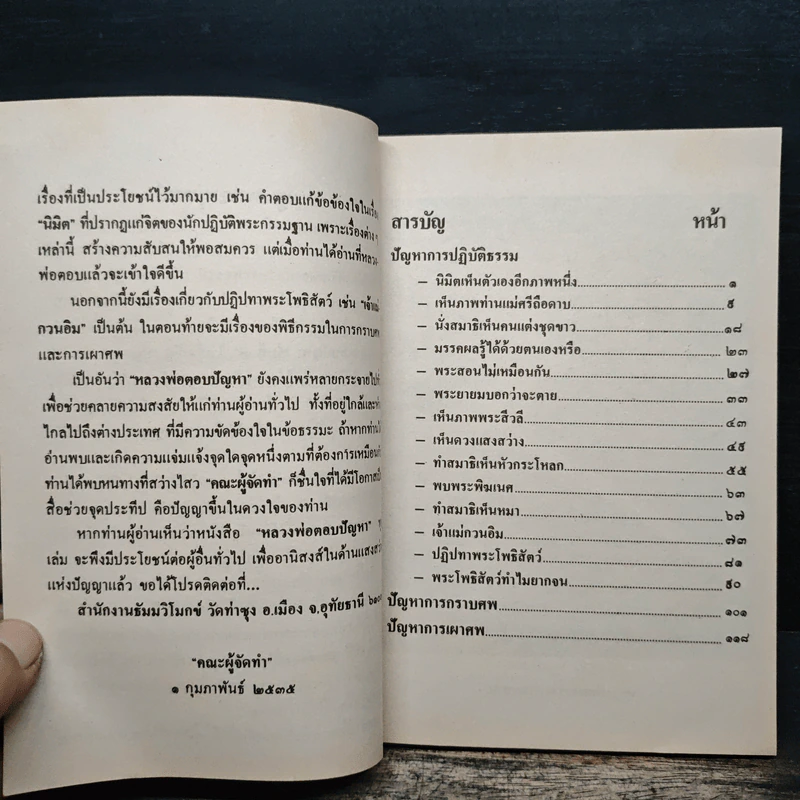 เรื่องที่เป็นประโยชน์ไว้มากมาย เช่น คำตอบแก้ข้อข้องใจในเรื่อง
“นิมิต” ที่ปรากฏแก่จิตของนักปฏิบัติพระกรรมฐาน เพราะเรื่องต่าง ๆ
เหล่านี้ สร้างความสับสนให้พอสมควร แต่เมื่อท่านได้อ่านที่หลวง-
พ่อตอบแล้วจะเข้าใจดีขึ้น
นอกจากนี้ยังมีเรื่องเกี่ยวกับปฏิปทาพระโพธิสัตว์ เช่น “เจ้าแม่
กวนอิม” เป็นต้น ในตอนท้ายจะมีเรื่องของพิธีกรรมในการกราบศพ
และการเผาศพ
เป็นอันว่า “หลวงพ่อตอบปัญหา” ยังคงแพร่หลายกระจายไป
เพื่อช่วยคลายความสงสัยให้แก่ท่านผู้อ่านทั่วไป ทั้งที่อยู่ใกล้และ
ไกลไปถึงต่างประเทศ ที่มีความขัดข้องใจในข้อธรรมะ ถ้าหากท่าน
อ่านพบและเกิดความแจ่มแจ้งจุดใดจุดหนึ่งตามที่ต้องการเหมือน
ท่านได้พบหนทางที่สว่างไสว “คณะผู้จัดทำ” ก็ชื่นใจที่ได้มีโอกาส
สื่อช่วยจุดประทีป คือปัญญาขึ้นในดวงใจของท่าน
หากท่านผู้อ่านเห็นว่าหนังสือ “หลวงพ่อตอบปัญหา”
เล่ม จะพึงมีประโยชน์ต่อผู้อื่นทั่วไป เพื่ออานิสงส์ในด้านแสงสว่าง
แห่งปัญญาแล้ว ขอได้โปรดติดต่อที่...
สำนักงานธัมมวิโมกข์ วัดท่าซุง อ.เมือง จ.อุทัยธานี
“คณะผู้จัดทำ”
๑ กุมภาพันธ์ ๒๕๓๕
สารบัญ หน้า
ปัญหาการปฏิบัติธรรม
— นิมิตเห็นตัวเองอีกภาพหนึ่ง ๑
— เห็นภาพท่านแม่ศรีถือดาบ ๙
— นั่งสมาธิเห็นคนแต่งชุดขาว ๑๘
— มรรคผลรู้ได้ด้วยตนเองหรือ ๒๓
— พระสอนไม่เหมือนกัน ๒๗
— พระยายมบอกว่าจะตาย ๓๓
— เห็นภาพพระสีวลี ๔๓
— เห็นดวงแสงสว่าง ๔๙
— ทำสมาธิเห็นหัวกระโหลก ๕๕
— พบพระพิฆเนศ ๖๓
— ทำสมาธิเห็นหมา ๖๗
— เจ้าแม่กวนอิม ๗๓
— ปฏิปทาพระโพธิสัตว์ ๘๑
— พระโพธิสัตว์ทำไมยากจน ๙๐
ปัญหาการกราบศพ ๑๐๑
ปัญหาการเผาศพ ๑๑๘